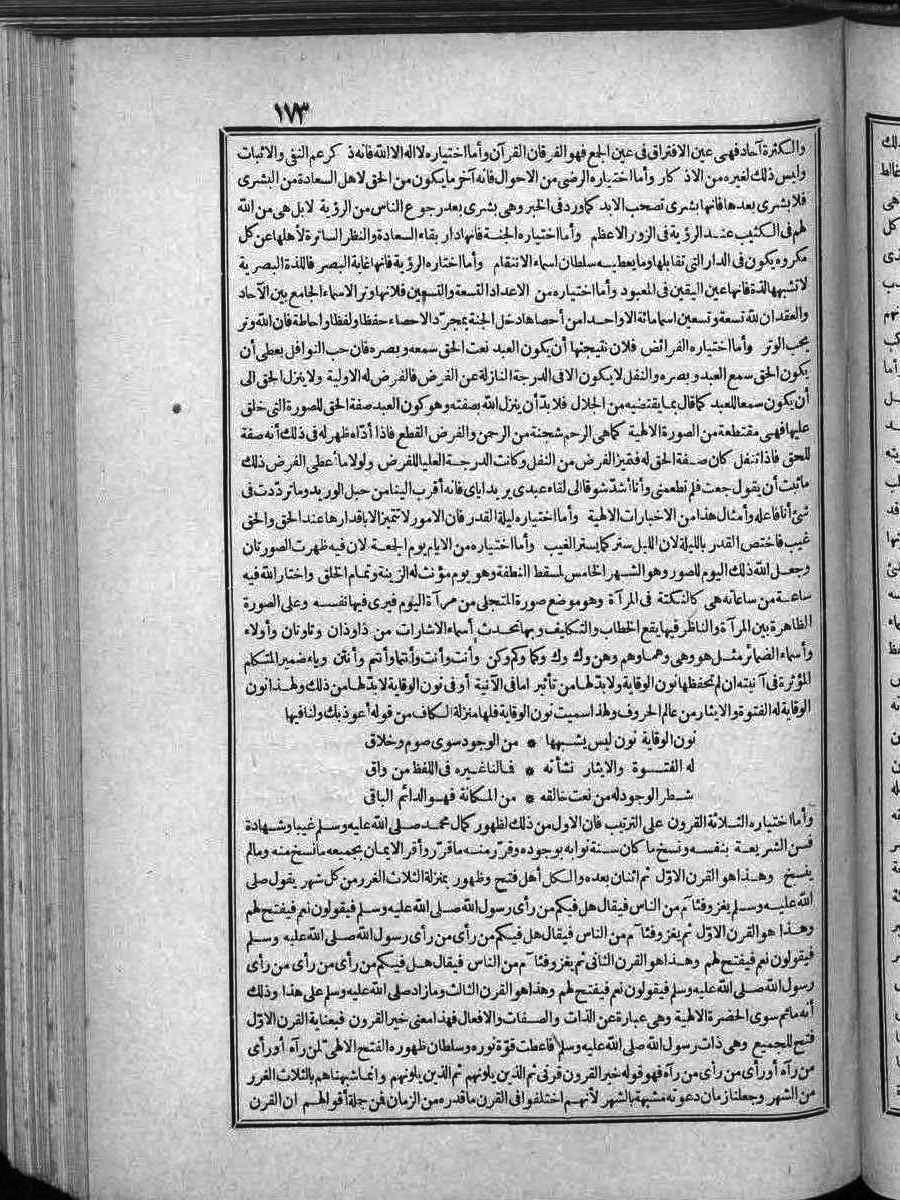 ١٧٣
والكثرة آحاد فهى عين الافتراق فى عين الجمع فهو الفرقان القرآن وأما اختياره لا اله الا الله فانه ذكر عم النفى والاثبات
وليس ذلك لغيره من الاذكار وأما اختياره الرضى من الاحوال فانه آخر ما يكون من الحق لاهل السعادة من البشرى
فلا بشرى بعدها فانها بشرى تصحب الابد كما ورد فى الخبر وهى بشرى بعد رجوع الناس من الرؤية لا بل هى من الله
لهم فى الكثيب عند الرؤية فى الزور الاعظم وأما اختياره الجنة فانها دار بقاء السعادة والنظر الساترة لأهلها عن كل
مكروه يكون فى الدار التى تقابلها وما يعطيه سلطان اسماء الانتقام وأما اختاره الرؤية فانها غاية البصر فاللذة البصرية
لا تشبهها لذة فانها عين اليقين فى المعبود وأما اختياره من الاعداد التسعة والتسعين فلانها وتر الاسماء الجامع بين الآحاد
والعقد ان لله تسعة وتسعين اسما مائة الا واحدا من أحصاها دخل الجنة بمجرّد الاحصاء حفظا ولفظا واحاطة فان الله وتر
يحب الوتر وأما اختياره الفرائض فلان نتيجتها أن يكون العبد نعت الحق سمعه وبصره فان حب النوافل يعطى أن
يكون الحق سمع العبد وبصره والنفل لا يكون الا فى الدرجة النازلة عن الفرض فالفرض له الاولية ولا ينزل الحق الى
أن يكون سمعا للعبد كما قال بما يقتضيه من الجلال فلا بدّ أن ينزل الله بصفته وهو كون العبد صفة الحق للصورة التى خلق
عليها فهى مقتطعة من الصورة الالهية كما هى الرحم شجنة من الرحمن والفرض القطع فاذا أدّاه ظهر له فى ذلك أنه صفة
للحق فاذا تنفل كان صفة الحق له فتميز الفرض من النفل وكانت الدرجة العليا للفرض ولولا ما أعطى الفرض ذلك
ما ثبت أن يقول جعت فلم تطعمنى وأنا أشدّ شوقا الى لقاء عبدى يريد اياى فانه أقرب الينا من حبل الوريد وما تردّدت فى
شئ أنا فاعله وأمثال هذا من الاخبارات الالهية وأما اختياره ليلة القدر فان الامور لا تتميز الا باقدارها عند الحق والحق
غيب فاختص القدر بالليلة لان الليل ستر كما يستر الغيب وأما اختياره من الايام يوم الجمعة لان فيه ظهرت الصورتان
وجعل الله ذلك اليوم للصور وهو الشهر الخامس لمسقط النطفة وهو يوم مؤنث له الزينة وتمام الخلق واختار الله فيه
ساعة من ساعاته هى كالنكتة فى المرآة وهو موضع صورة المتجلى من مرآة اليوم فيرى فيها نفسه وعلى الصورة
الظاهرة بين المرآة والناظر فيها يقع الخطاب والتكليف وبها تحدث أسماء الاشارات من ذا وذان وتا وتان وأولاء
وأسماء الضمائر مثل هو وهى وهما وهم وهن وك وك وكما وكم وكن وأنت وأنت وأنتما وأنتم وأنتن وياء ضمير المتكلم
المؤثرة فى آنيته ان لم تحفظها نون الوقاية ولا بدّ لها من تأثير اما فى الآنية أو فى نون الوقاية لا بدّ لها من ذلك ولهذا نون
الوقاية له الفتوة والايثار من عالم الحروف ولهذا سميت نون الوقاية فلها منزلة الكاف من قوله أعوذ بك ولنا فيها
نون الوقاية نون ليس يشبهها * من الوجود سوى صوم وخلاق
له الفتوة والايثار نشأته * فما لنا غيره فى اللفظ من واق
شطر الوجود له من نعت خالقه * من المكانة فهو الدائم الباقى
وأما اختياره الثلاثة القرون على الترتيب فان الاول من ذلك لظهور كمال محمد صلى الله عليه وسلم غيبا وشهادة
فسن الشريعة بنفسه ونسخ ما كان سنة نوّابه بوجوده وقرّر منه ما قرّر وأقر الايمان بجميعه ما نسخ منه وما لم
ينسخ وهذا هو القرن الاوّل ثم اثنان بعده والكل أهل فتح وظهور بمنزلة الثلاث الغرر من كل شهر يقول صلى
الله عليه وسلم يغزو فئام من الناس فيقال هل فيكم من رأى رسول الله صلى الله عليه وسلم فيقولون نعم فيفتح لهم
وهذا هو القرن الاوّل ثم يغزو فئام من الناس فيقال هل فيكم من رأى من رأى رسول الله صلى الله عليه وسلم
فيقولون نعم فيفتح لهم وهذا هو القرن الثانى ثم يغزو فئام من الناس فيقال هل فيكم من رأى من رأى من رأى
رسول الله صلى الله عليه وسلم فيقولون نعم فيفتح لهم وهذا هو القرن الثالث وما زاد صلى الله عليه وسلم على هذا وذلك
أنه ما ثم سوى الحضرة الالهية وهى عبارة عن الذات والصفات والافعال فهذا معنى خير القرون فبعناية القرن الاوّل
فتح للجميع وهى ذات رسول الله صلى الله عليه وسلم فاعطت قوّة نوره وسلطان ظهوره الفتح الالهىّ لمن رآه أو رأى
من رآه أو رأى من رأى من رآه فهو قوله خير القرون قرنى ثم الذين يلونهم ثم الذين يلونهم وانما شبهناهم بالثلاث الغرر
من الشهر وجعلنا زمان دعوته مشبهة بالشهر لأنهم اختلفوا فى القرن ما قدره من الزمان فمن جملة أقوالهم ان القرن